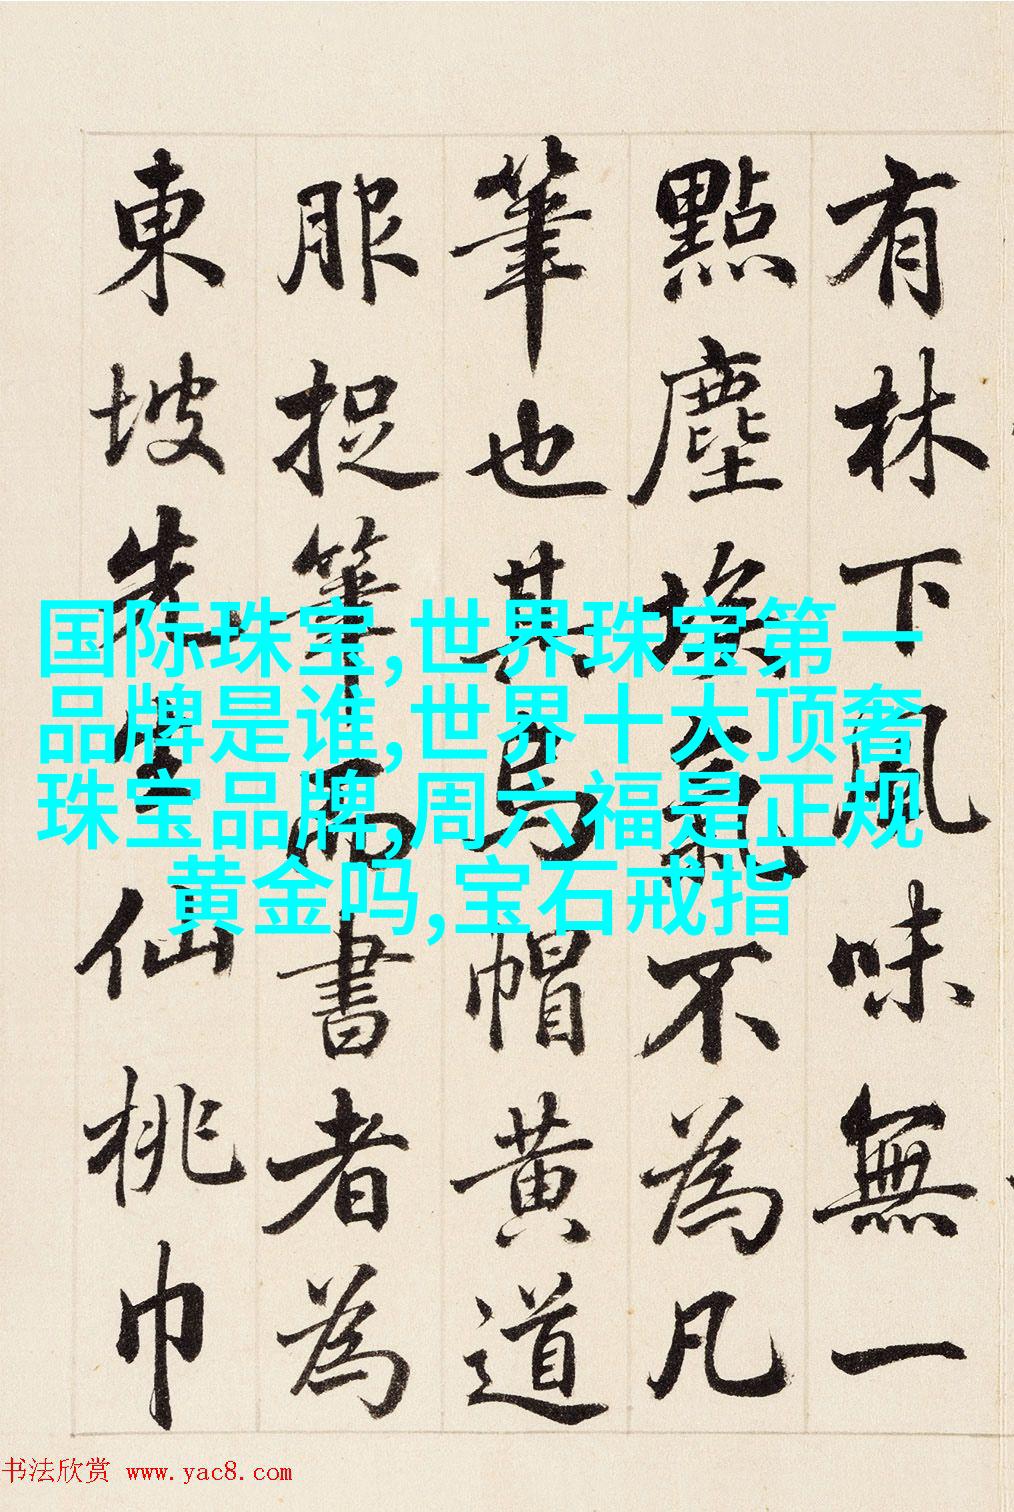 有林下風味無一
點塵埃氣不為凡
筆也其烏帽黃道
服捉筆而書者為
東坡先生仙桃巾
国际珠宝,世界珠宝第一
品牌是谁,世界十大顶奢
珠宝品牌,周六福是正规
黄金吗,宝石戒指
书法欣赏 www.yac8.com